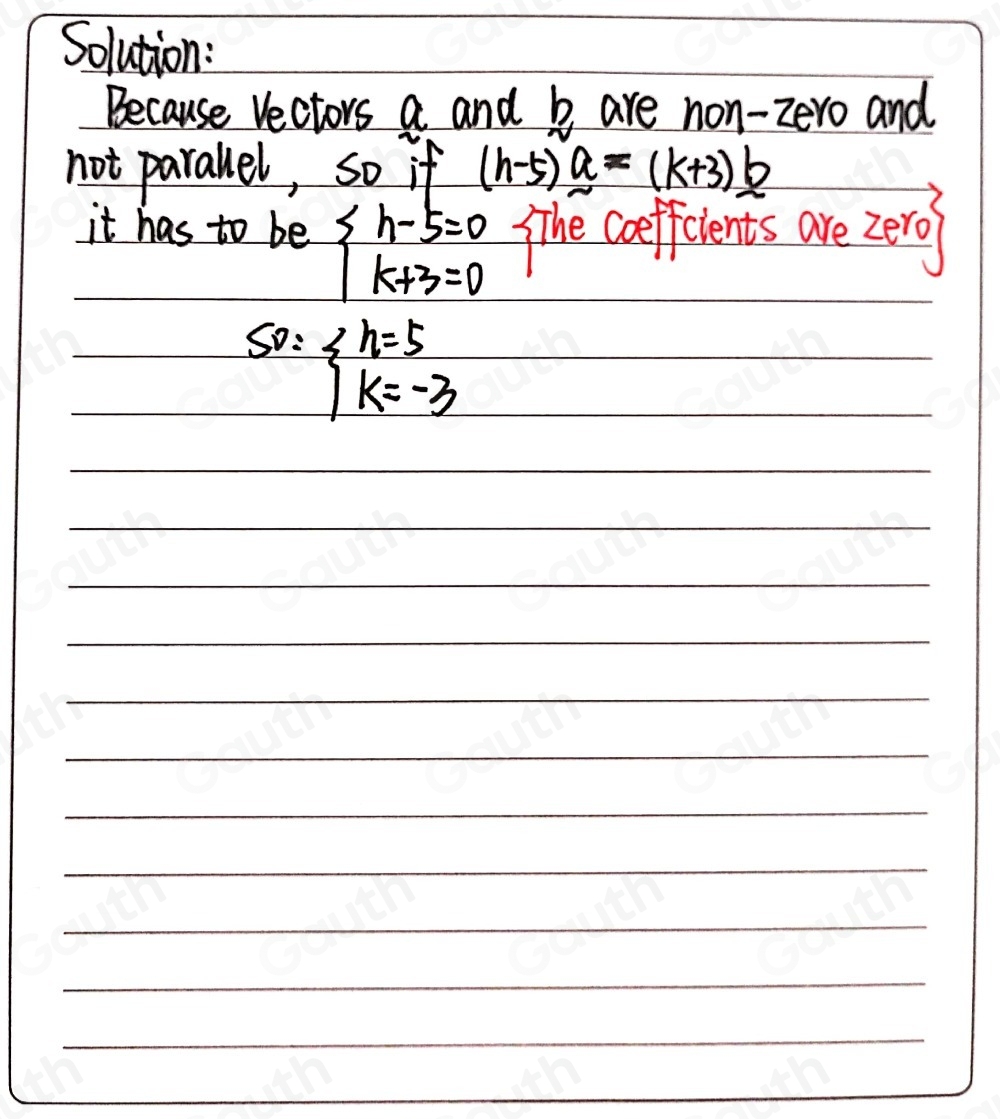 Solution:
Because Vectors a and b are non-zero and
not parallel, so if (h-5)a = (k+3)b
it has to be { h-5=0 {The coeffcients are zero}
k+3=0
so: { h=5
k=-3
Gauth